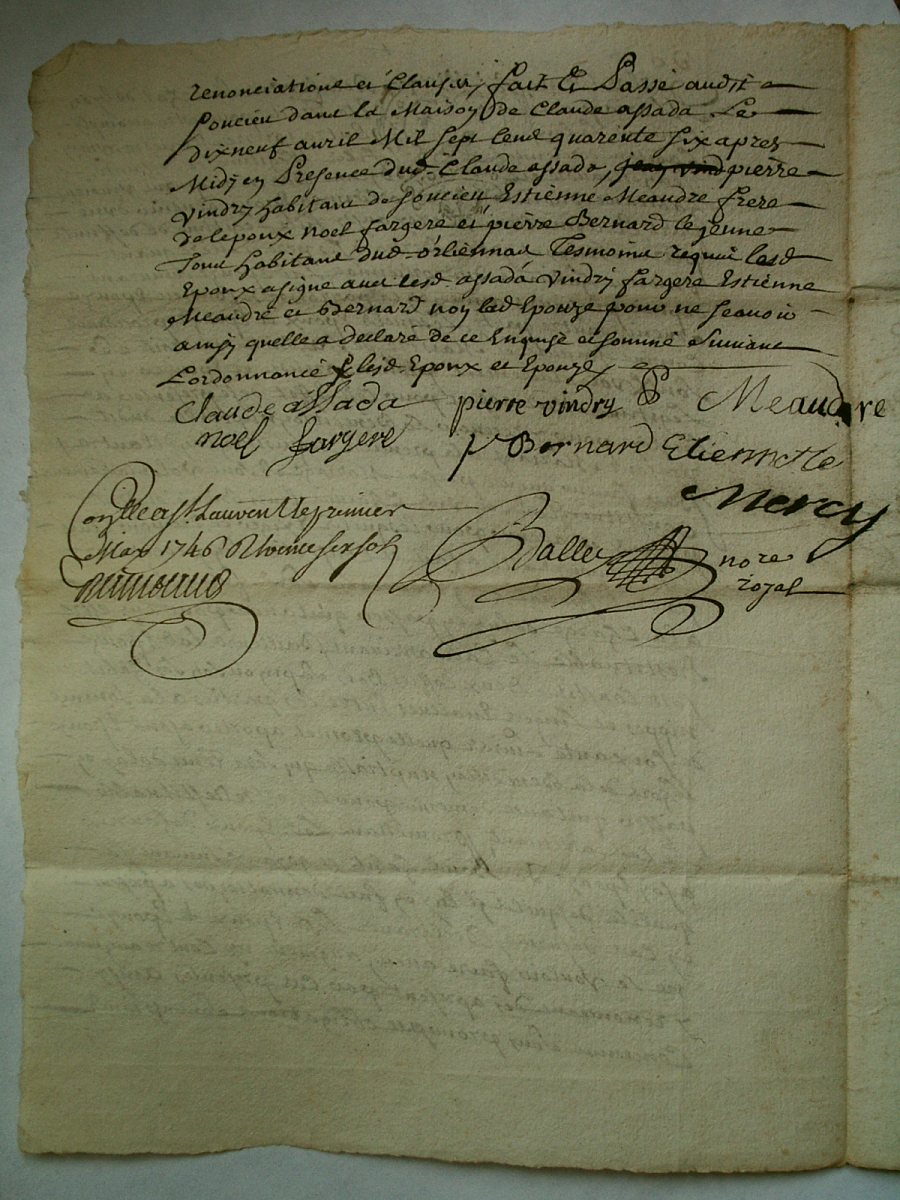 renonciations et clauses, fait et Passé audit
Soucieu dans la Maison de Claude assada Le
dixneuf avril Mil sept Cent quarente six apres
Midy en Presence dud. Claude assada, pierre
vindry habitant de Soucieu Estienne Meandre frere
de lepoux noel fargere et pierre Bernard le jeune
tous habitans dud. orliennas Tesmoins requis lesd
Epoux a signé avec lesd assada vindry fargere Estienne
Meandre et Bernard non lad Epouze pour ne scavoir
ainsy quelle a declaré de ce Enquise et sommé Suivant
Lordonnance lesd. Epoux et Epouze
Claude assada pierre vindry Meandre
noel fargere p Bernard Etienne
Mercy
St. Laurent le premier
May 1746
Balley nore
royal